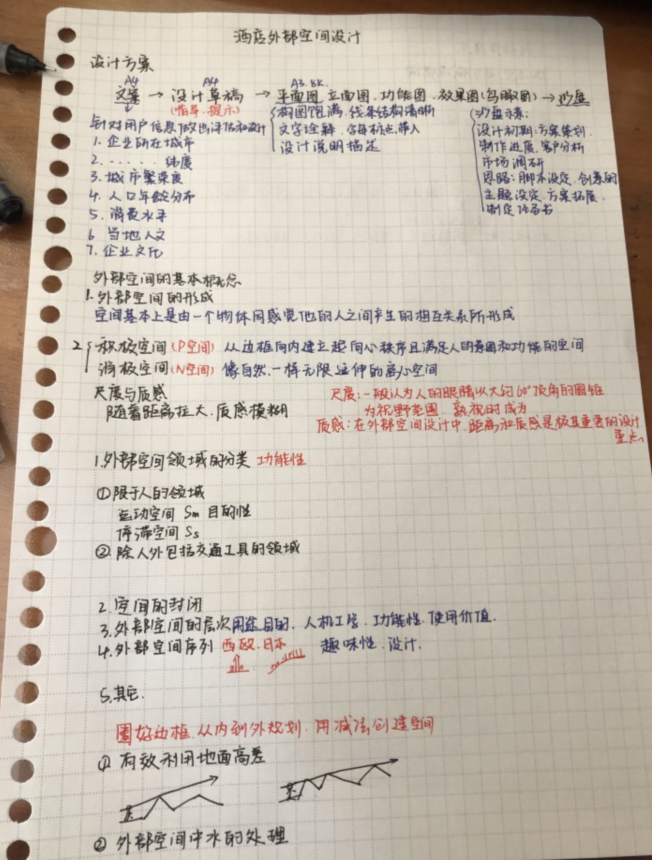 酒店外部空间设计
设计方案
A4 A4 A3.8K.
文案 → 设计草稿 → 平面图 立面图、功能图、效果图(鸟瞰图) → 沙盘
(指导、提示)
构图饱满、线条结构清晰
文字诠释、字母标点、带入
设计说明描述
沙盘方案:
设计初期、方案策划、
制作进度、客户分析
市场调研
思路:脚本设定、创意的
主题设定、方案拓展、
制定任务书
针对用户信息做出评估和设计
1. 企业所在城市
2. ······ 纬度
3. 城市繁荣度
4. 人口年龄分布
5. 消费水平
6 当地人文
7. 企业文化
外部空间的基本概念
1. 外部空间的形成
空间基本上是由一个物体同感觉他的人之间产生的相互关系所形成
2 积极空间(P空间) 从边框向内建立起向心秩序且满足人的意图和功能的空间
消极空间(N空间) 像自然一样无限延伸的离心空间
尺度与质感
随着距离拉大、质感模糊
尺度:一般认为人的眼睛以大约60°顶角的圆锥
为视野范围、熟视时成为
质感:在外部空间设计中,距离和质感是极其重要的设计
重点
1.外部空间领域的分类 功能性
①限于人的领域
运动空间 Sm 目的性
停滞空间 Ss
②除人外包括交通工具的领域
2. 空间的封闭
3. 外部空间的层次用途目的、人机工学、功能性、使用价值.
4. 外部空间序列 西欧.日本 趣味性、设计.
5.其它.
圈好边框、从内到外规划、用减法创建空间
① 有效利用地面高差
② 外部空间中水的处理